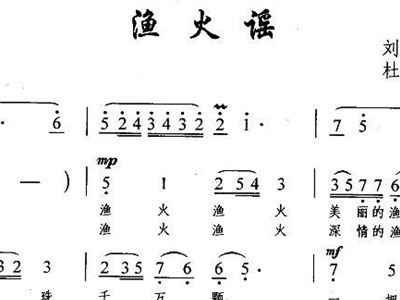 渔火谣
刘
杜
· 6 | 5 24 3432 2 1· | 7 5
mp
— ) | 5 1 254 3 | 3577 6
渔 火 渔 火 美 丽的渔
渔 火 渔 火 深 情的渔
mf
32 3 | 2 35 76 65· | 7 5
珠 千 万 颗